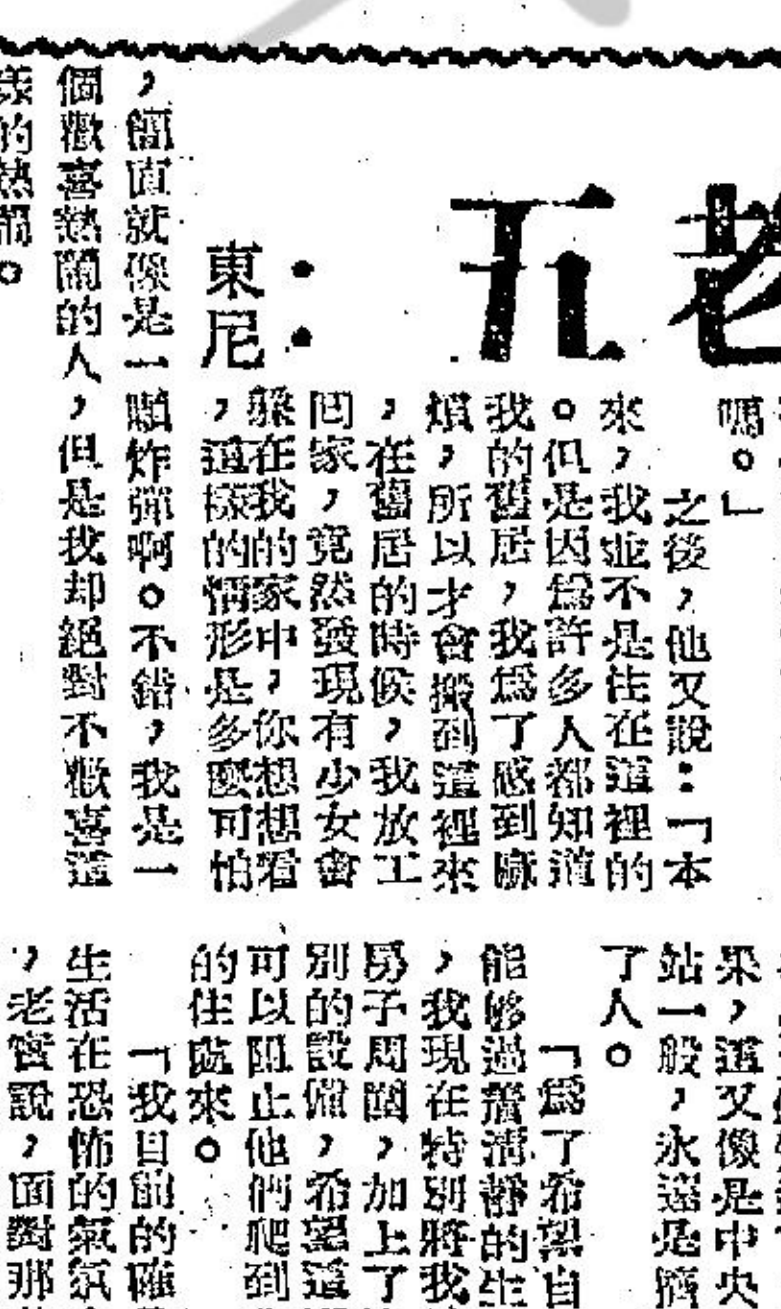 老五
：東尼
嗎。」
之後，他又說：「本
來，我並不是住在這裡的
。但是因爲許多人都知道
我的舊居，我爲了感到麻
煩，所以才會搬到這裡來
，在舊居的時候，我放工
回家，竟然發現有少女會
躲在我的家中，你想想看
，這樣的情形是多麼可怕
，簡直就像是一顆炸彈啊。不錯，我是一
個歡喜熱鬧的人，但是我却絕對不歡喜這
樣的熱鬧。
果，這又像是中央
站一般，永遠是擠
了人。
「爲了希望自
能够過着清靜的生
，我現在特別將我
房子周圍，加上了
別的設備，希望這
可以阻止他們爬到
的住處來。
「我目前的確
生活在恐怖的氣氛
，老實說，面對那